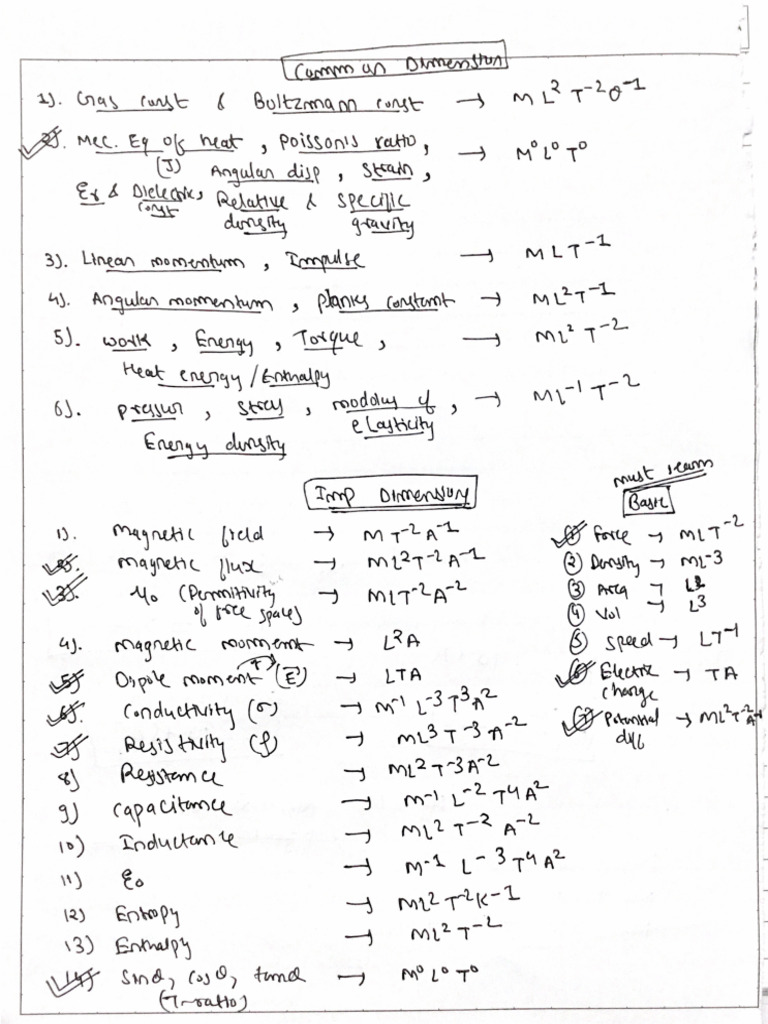 Common Dimension
1). Gas const & Boltzmann const → M L² T⁻² θ⁻¹
2). Mec. Eq of heat, Poissonis ratio, → M⁰L⁰T⁰
(J) Angular disp, Strain,
Er & Dielectric const, Relative density & specific gravity
3). Linear momentum, Impulse → MLT⁻¹
4). Angular momentum, planks constant → ML²T⁻¹
5). work, Energy, Torque, → ML² T⁻²
Heat energy / Enthalpy
6). pressur, stress, modolus of elasticity, → ML⁻¹ T⁻²
Energy density
Imp Dimension
1). magnetic field → M T⁻² A⁻¹
2). magnetic flux → ML² T⁻² A⁻¹
3). μ₀ (Permitivity of free space) → MLT⁻² A⁻²
4). magnetic moment → L² A
5) Dipole moment (E) → LTA
6). Conductivity (σ) → M⁻¹ L⁻³ T³ A²
7) Resistivity (ρ) → ML³ T⁻³ A⁻²
8) Resistance → ML² T⁻³ A⁻²
9) Capacitance → M⁻¹ L⁻² T⁴ A²
10) Inductance → ML² T⁻² A⁻²
11) ε₀ → M⁻¹ L⁻³ T⁴ A²
12) Entropy → ML² T⁻² K⁻¹
13) Enthalpy → ML² T⁻²
14) Sinθ, cosθ, tanθ → M⁰ L⁰ T⁰
(T-ratio)
must learn
Basic
1 Force → MLT⁻²
2 Density → ML⁻³
3 Area → L²
4 Vol → L³
5 speed → LT⁻¹
6 Electric charge → TA
7 Potential diff → ML² T⁻²